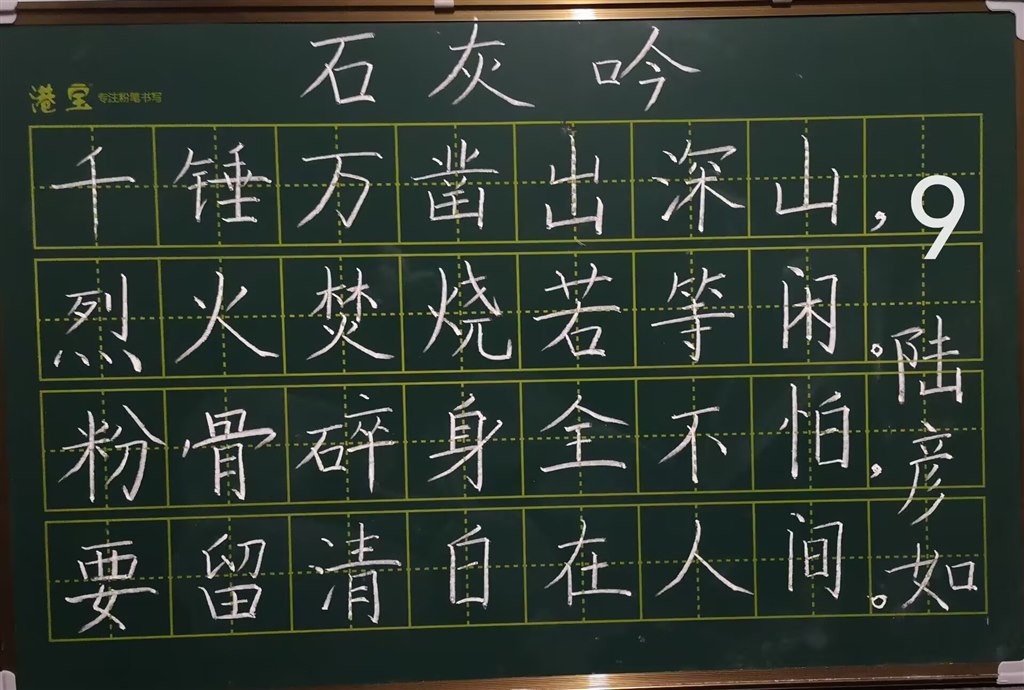 石灰吟
港宝 专注粉笔书写
千锤万凿出深山,
9
烈火焚烧若等闲。
粉骨碎身全不怕,
要留清白在人间。
陆彦如